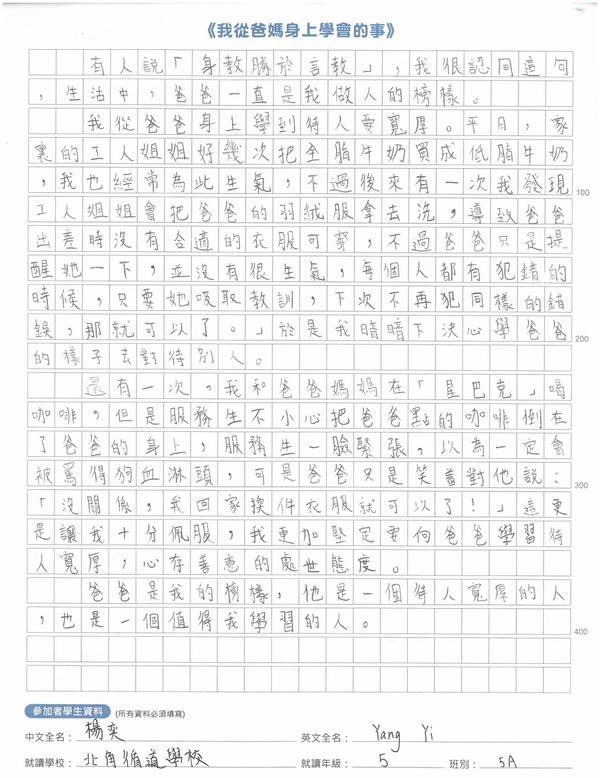 《我從爸媽身上學會的事》
有人說「身教勝於言教」，我很認同這句
，生活中，爸爸一直是我做人的榜樣。
我從爸爸身上學到待人要寬厚。平日，家
裏的工人姐姐好幾次把全脂牛奶買成低脂牛奶
，我也經常為此生氣，不過後來有一次我發現
100
工人姐姐會把爸爸的羽絨服拿去洗，導致爸爸
出差時沒有合適的衣服可穿，不過爸爸只是提
醒她一下，並沒有很生氣，每個人都有犯錯的
時候，只要她吸取教訓，下次不再犯同樣的錯
誤，那就可以了。」於是我暗暗下決心學爸爸
200
的樣子去對待別人。
還有一次。我和爸爸媽媽在「星巴克」喝
咖啡，但是服務生不小心把爸爸點的咖啡倒在
了爸爸的身上，服務生一臉緊張，以為一定會
被罵得狗血淋頭，可是爸爸只是笑着對他說：
300
「沒關係，我回家換件衣服就可以了！」這更
是讓我十分佩服，我更加堅定要向爸爸學習待
人寬厚，心存善意的處世態度。
爸爸是我的榜樣，他是一個待人寬厚的人
，也是一個值得我學習的人。
400
參加者學生資料 (所有資料必須填寫)
中文全名： 楊奕 英文全名： Yang Yi
就讀學校： 北角循道學校 就讀年級： 5 班別： 5A